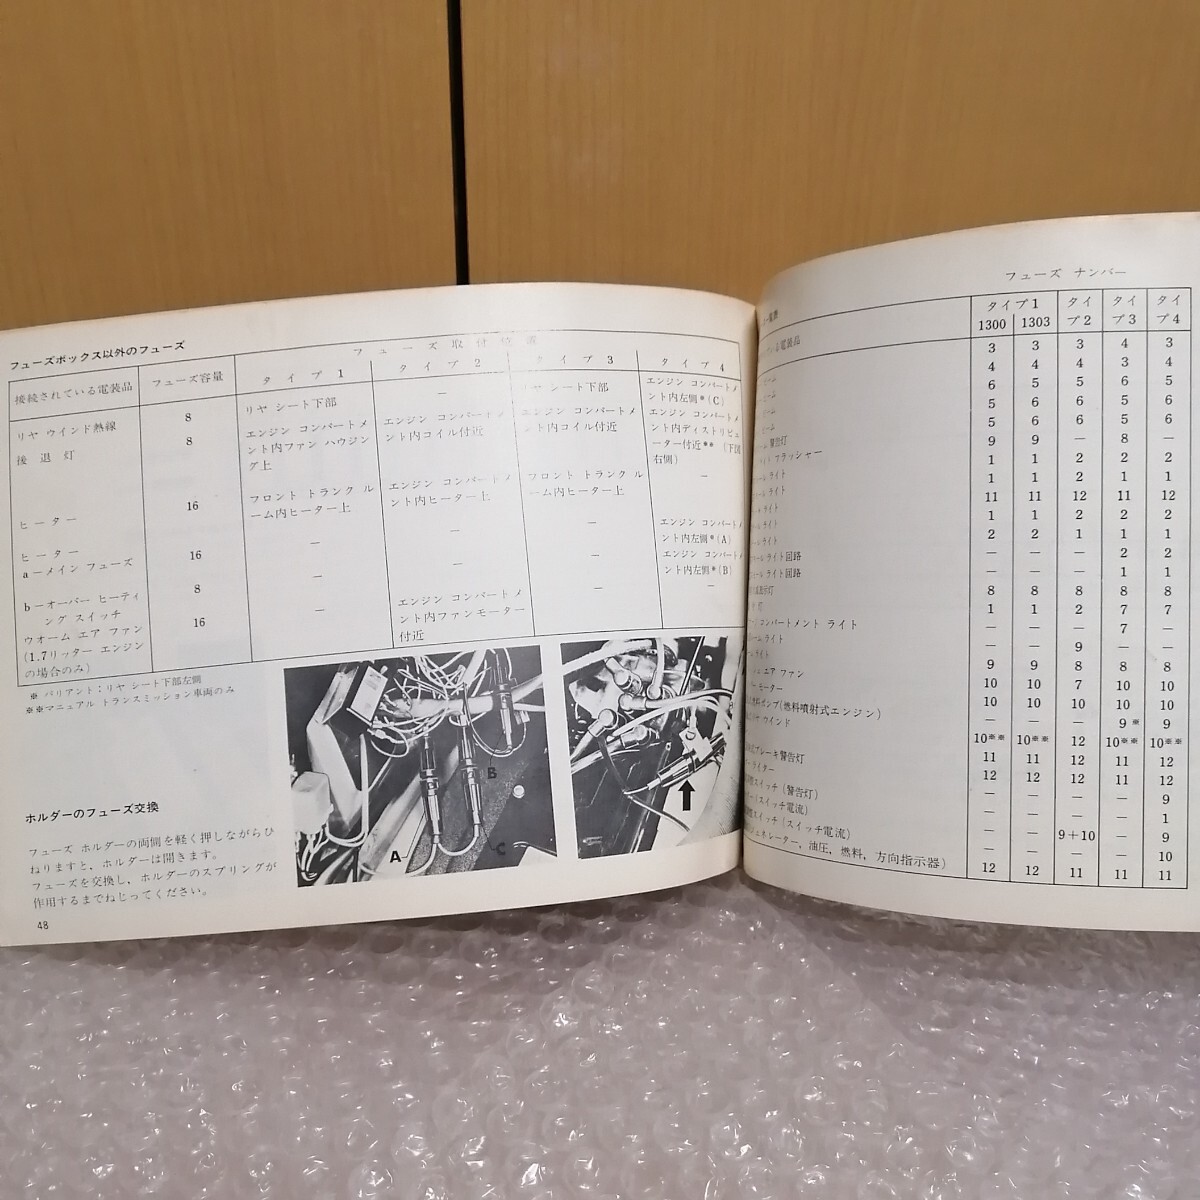 フューズボックス以外のフューズ
フューズ取付位置
接続されている電装品 フューズ容量 タイプ1 タイプ2 タイプ3 タイプ4
リヤ ウインド熱線 8 リヤ シート下部 — リヤ シート下部 エンジン コンパートメント内左側*(C)
後退灯 8 エンジン コンパートメント内ファン ハウジング上 エンジン コンパートメント内コイル付近 エンジン コンパートメント内コイル付近 エンジン コンパートメント内ディストリビューター付近** (下図右側)
ヒーター 16 フロント トランク ルーム内ヒーター上 エンジン コンパートメント内ヒーター上 フロント トランク ルーム内ヒーター上 —
ヒーター
a-メイン フューズ 16 — — — エンジン コンパートメント内左側*(A)
b-オーバー ヒーティング スイッチ 8 — エンジン コンパートメント内左側*(B)
ウオーム エア ファン (1.7リッター エンジンの場合のみ) 16 — エンジン コンパートメント内ファンモーター付近 — —
※ バリアント:リヤ シート下部左側
※※マニュアル トランスミッション車両のみ
ホルダーのフューズ交換
フューズ ホルダーの両側を軽く押しながらひ
ねりますと、ホルダーは開きます。
フューズを交換し、ホルダーのスプリングが
作用するまでねじってください。
A
B
C
48
フューズ ナンバー
タイプ1 タイプ2 タイプ3 タイプ4
1300 1303
電装品 3 3 3 4 3
4 4 4 3 4
6 5 5 6 5
5 6 6 5 6
5 6 6 5 6
警告灯 9 9 — 8 —
フラッシャー 1 1 2 2 2
ライト 1 1 2 1 1
ライト 11 11 12 11 12
ライト 1 1 2 2 2
ライト 2 2 1 1 1
ライト回路 — — — 2 2
ライト回路 — — — 1 1
8 8 8 8 8
灯 1 1 2 7 7
コンパートメント ライト — — — 7 —
ライト — — 9 — —
エア ファン 9 9 8 8 8
モーター 10 10 7 10 10
燃料ポンプ(燃料噴射式エンジン) 10 10 10 10 10
リヤ ウインド — — — 9※ 9
10※※ 10※※ 12 10※※ 10※※
ブレーキ警告灯 11 11 12 11 12
ライター 12 12 12 11 12
スイッチ(警告灯) — — — — 9
(スイッチ電流) — — — — 1
スイッチ(スイッチ電流) — — 9+10 — 9
— — — — 10
ジェネレーター, 油圧, 燃料, 方向指示器) 12 12 11 11 11